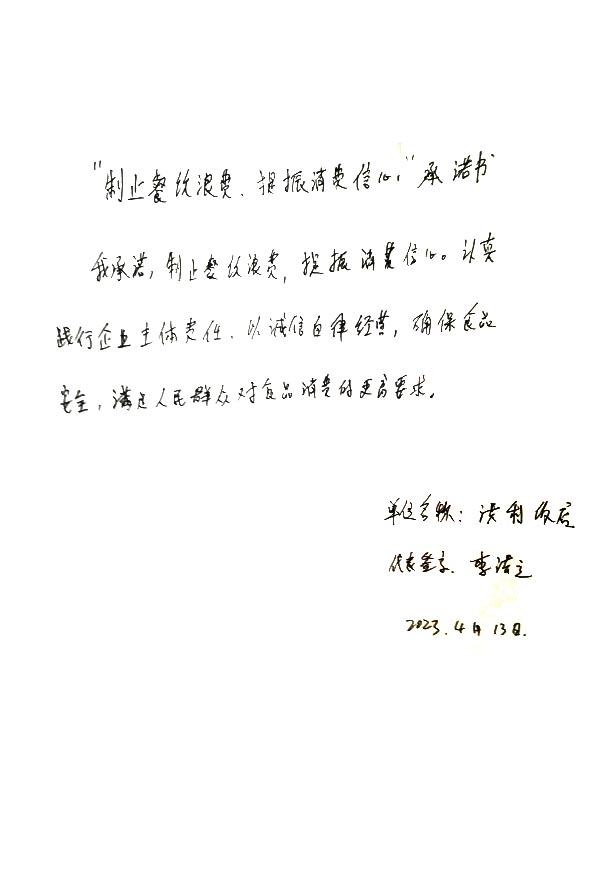 "制止餐饮浪费、提振消费信心"承诺书
我承诺,制止餐饮浪费,提振消费信心。认真
践行企业主体责任、以诚信自律经营,确保食品
安全,满足人民群众对食品消费的更高要求。
单位名称: 利饭店
代表签字、李洁立
2023.4月13日.